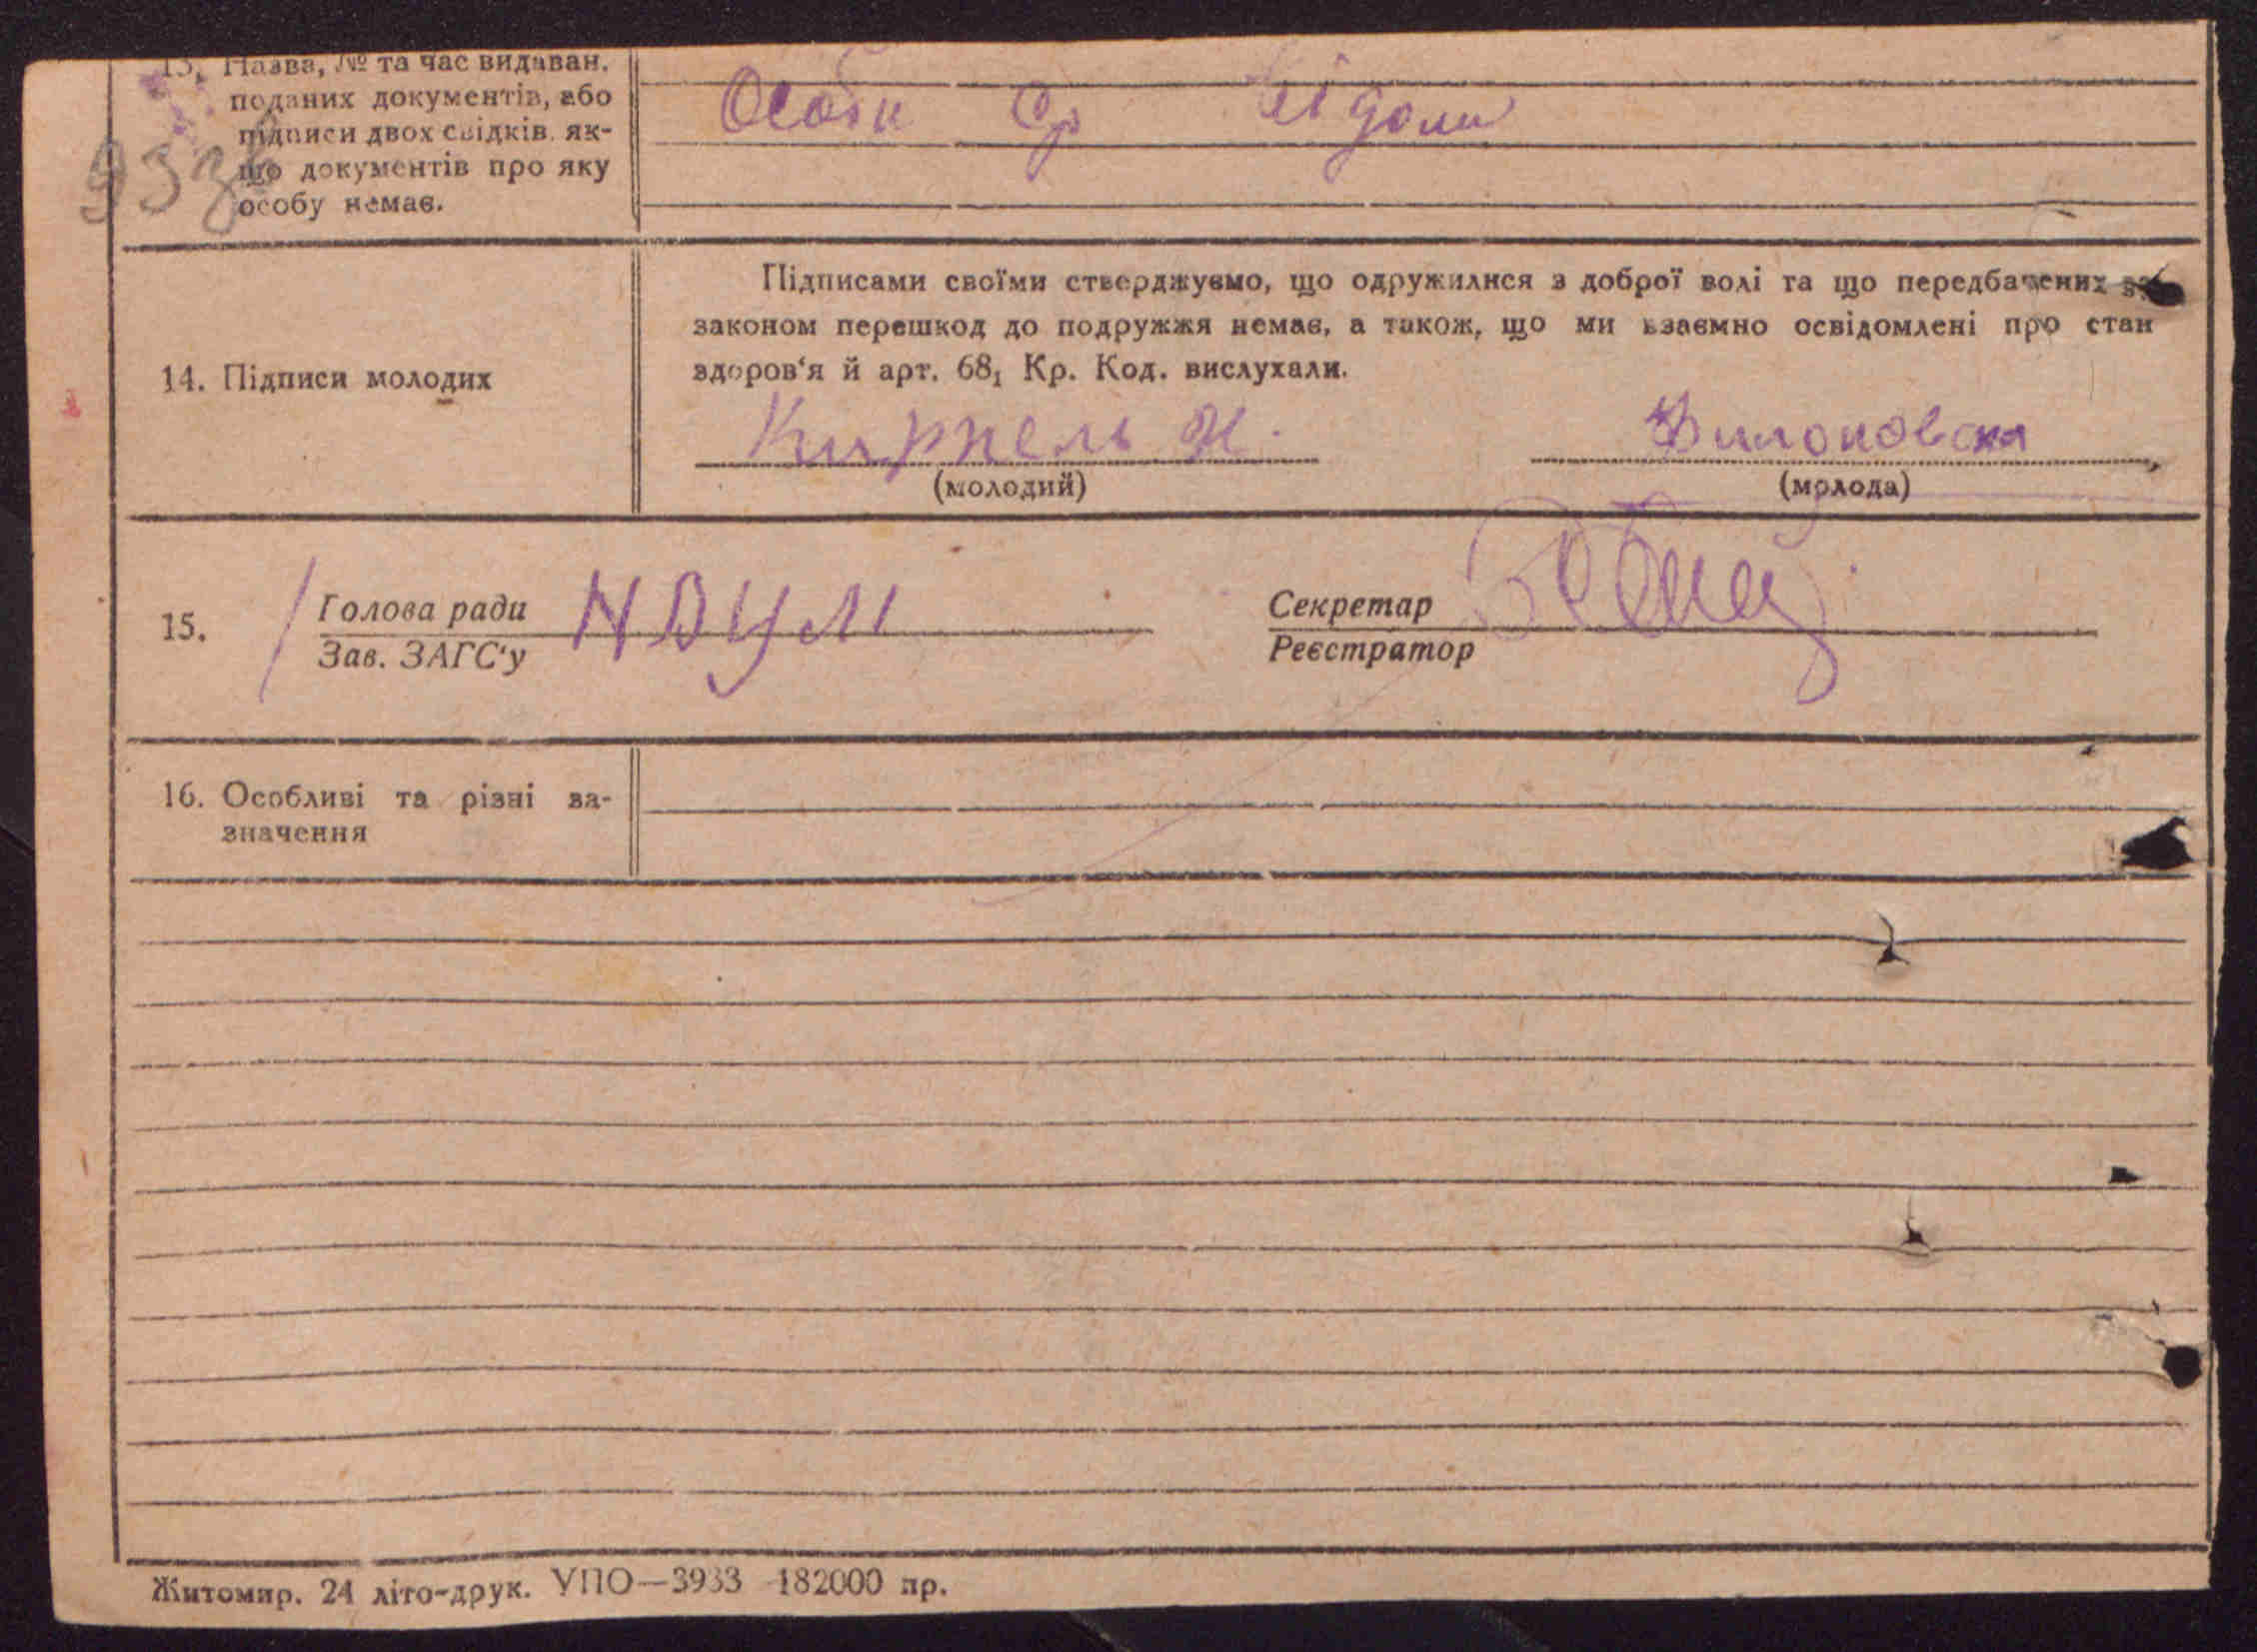 13. Назва, № та час видаван.
поданих документів, або
підписи двох свідків, як-
що документів про яку
особу немає.
Особи
14. Підписи молодих
Підписами своїми стверджуємо, що одружилися з доброї волі та що передбачених
законом перешкод до подружжя немає, а також, що ми взаємно освідомлені про стан
здоров'я й арт. 68₁ Кр. Код. вислухали.
Кирпель Н.
(молодий)
Филоновска
(молода)
15.
Голова ради
Зав. ЗАГС'у
Секретар
Реєстратор
16. Особливі та різні за-
значення
Житомир. 24 літо-друк. УПО—3933 182000 пр.